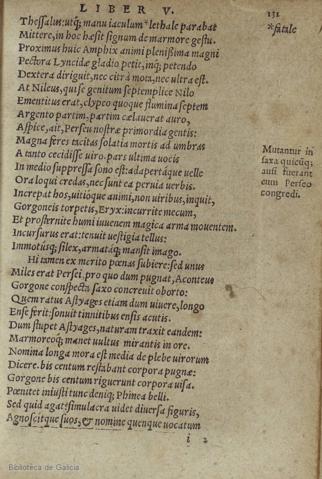 LIBER V. 131
Thessalus: utq; manu iaculum *lethale parabat
*fatale
Mittere, in hoc hæsit signum de marmore gestu.
Proximus huic Amphix animi plenißima magni
Pectora Lyncidæ gladio petit, inq; petendo
Dextera diriguit, nec citrà mota, nec ultra est.
At Nileus, qui se genitum septemplice Nilo
Ementitus erat, clypeo quoque flumina septem
Argento partim, partim cælauerat auro,
Aspice, ait, Perseu nostræ primordia gentis:
Magna feres tacitas solatia mortis ad umbras
A tanto cecidisse uiro. pars ultima uocis
In medio suppressa sono est: adapertáque uelle
Ora loqui credas, nec sunt ea peruia uerbis.
Increpat hos, uitióque animi, non uiribus, inquit,
Gorgoneis torpetis, Eryx: incurrite mecum,
Et prosternite humi iuuenem magica arma mouentem.
Incursurus erat: tenuit uestigia tellus:
Immotúsq; silex, armatáq; mansit imago.
Mutantur in
saxa quicūq;
ausi fuerant
cum Perseo
congredi.
Hi tamen ex merito pœnas subiere: sed unus
Miles erat Persei, pro quo dum pugnat, Aconteus
Gorgone conspecta saxo concreuit oborto:
Quem ratus Astyages etiam dum uiuere, longo
Ense ferit: sonuit tinnitibus ensis acutis.
Dum stupet Astyages, naturam traxit eandem:
Marmoreoq; manet uultus mirantis in ore.
Nomina longa mora est media de plebe uirorum
Dicere. bis centum restabant corpora pugnæ:
Gorgone bis centum riguerunt corpora uisa.
Pœnitet iniusti tunc deniq; Phinea belli.
Sed quid agat? simulacra uidet diuersa figuris,
Agnoscitque suos, & nomine quenque uocatum
i 2
Biblioteca de Galicia